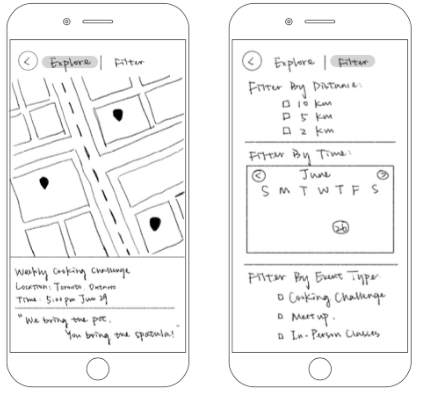 Explore | Filter
Weekly Cooking Challenge
Location: Toronto, Ontario
Time: 5:00pm Jun 29
"We bring the pot,
You bring the spatula!"
Explore | Filter
Filter By Distance:
10 km
5 km
2 km
Filter By Time:
June
S M T W T F S
26
Filter By Event Type:
Cooking Challenge
Meet up.
In-Person Classes